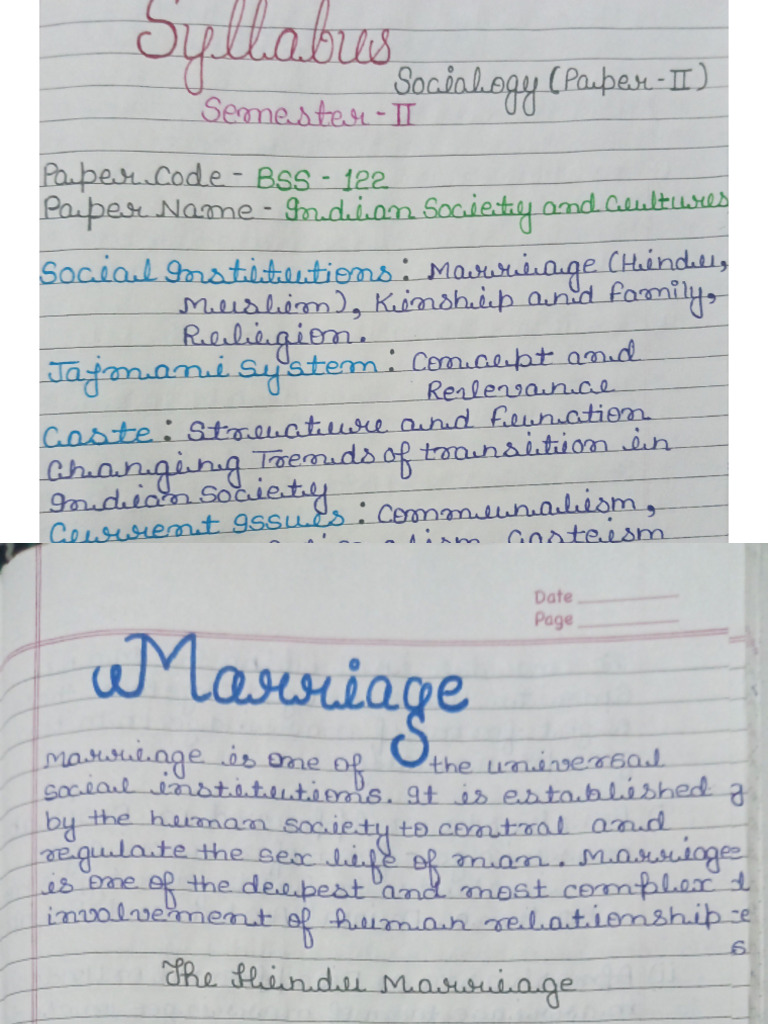 Syllabus
Socialogy (Paper-II)
Semester-II
Paper Code - BSS - 122
Paper Name - Indian Society and Cultures
Social Institutions : Marriage (Hindu,
Muslim), Kinship and family,
Religion.
Jajmani System : Concept and
Relevance
Caste : Structure and Function
Changing Trends of transition in
Indian Society
Current Issues : Communalism,
Casteism
Date
Page
Marriage
Marriage is one of the universal
social institutions. It is established
by the human society to control and
regulate the sex life of man. Marriage
is one of the deepest and most complex
involvement of human relationship
The Hindu Marriage